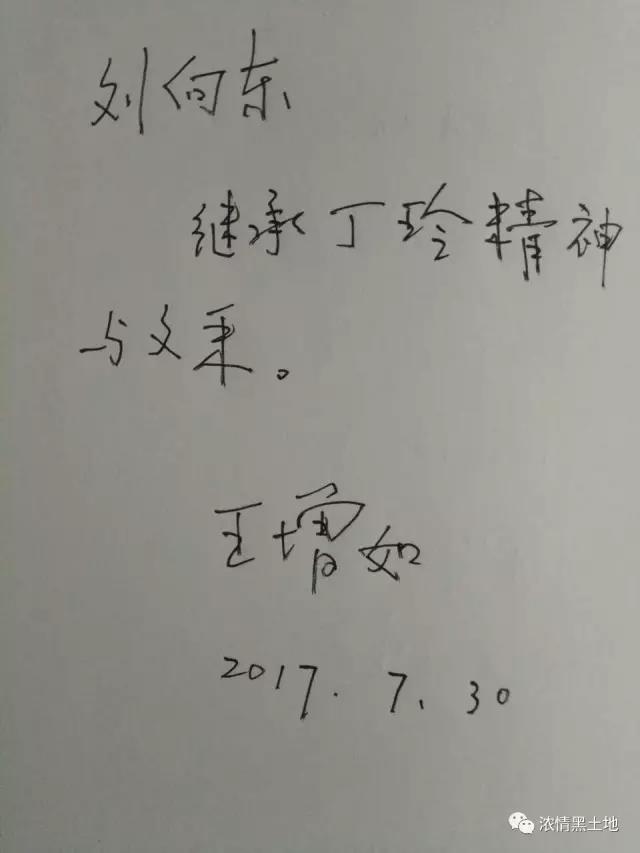 刘向东
继承丁玲精神
与文采。
王增如
2017.7.30
浓情黑土地